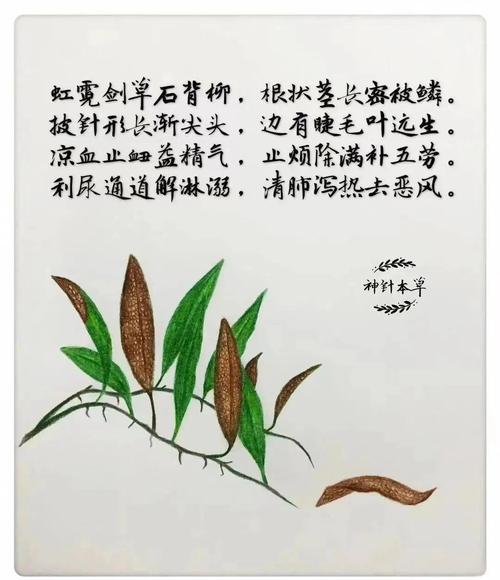 虹霓剑草石背柳，根状茎长密被鳞。
披针形长渐尖头，边有睫毛叶远生。
凉血止衄益精气，止烦除满补五劳。
利尿通道解淋溺，清肺泻热去恶风。
神针本草